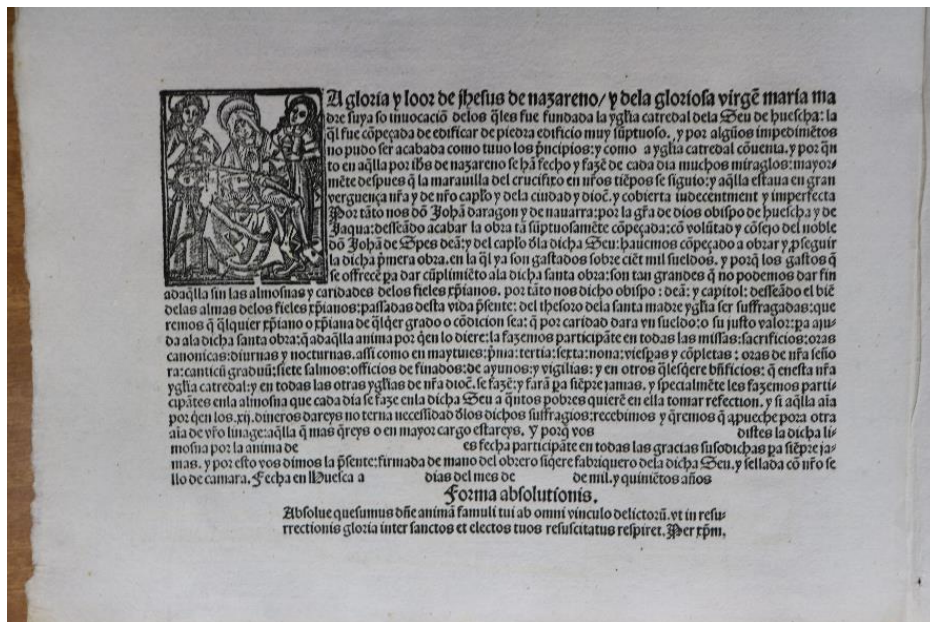 A gloria y loor de jhesus de nazareno/ y dela gloriosa virgẽ maria ma
dre suya so inuocaciõ delos q̃les fue fundada la yglia catredal dela Seu de huescha: la
q̃l fue cõpeçada de edificar de piedra edificio muy sũptuoso. y por algũos impedimẽtos
no pudo ser acabada como tuuo los p̃ncipios: y como a yglia catredal cõuenta. y por q̃n
to en aq̃lla por ihs de nazareno se hã fecho y fazẽ de cada dia muchos miraglos: mayor⸗
mẽte despues q̃ la marauilla del crucifixo en nr̃os tiẽpos se siguio: y aq̃lla estaua en gran
verguença nr̃a y de nr̃o caplo y dela ciudad y dioc̃. y cobierta indecentment y imperfecta
Por tãto nos dõ Johã daragon y de nauarra: por la gr̃a de dios obispo de huescha y de
Jaqua: desseãdo acabar la obra tã sũptuosamẽte cõpeçada: cõ volũtad y cõsejo del noble
dõ Johã de Spes deã: y del caplo d̃la dicha Seu: hauemos cõpeçado a obrar y ꝓseguir
la dicha p̃mera obra. en la q̃l ya son gastados sobre ciẽt mil sueldos. y porq̃ los gastos q̃
se offrecẽ pa dar cũplimiẽto ala dicha santa obra: son tan grandes q̃ no podemos dar fin
adaq̃lla sin las almosnas y caridades delos fieles xp̃ianos. por tãto nos dicho obispo: deã: y capitol: desseãdo el biẽ
delas almas delos fieles xp̃ianos: passadas desta vida p̃sente: del thesoro dela santa madre yglia ser suffragadas: que
remos q̃ q̃lquier xp̃iano o xp̃iana de q̃lq̃er grado o cõdicion sea: q̃ por caridad dara vn sueldo: o su justo valor: pa aju⸗
da ala dicha santa obra: q̃ adaq̃lla anima por q̃en lo diere: la fazemos participãte en todas las missas: sacrificios: oras
canonicas: diurnas y nocturnas. assi como en maytines: p̃ma: tertia: sexta: nona: viespas y cõpletas: oras de nr̃a seño
ra: canticũ graduũ: siete salmos: officios de finados: de ayunos: y vigilias: y en otros q̃lesq̃ere bñficios: q̃ enesta nr̃a
yglia catredal: y en todas las otras yglias de nr̃a dioc̃. se fazẽ: y farã pa siẽpre jamas. y specialmẽte les fazemos parti⸗
cipãtes enla almosna que cada dia se faze enla dicha Seu a q̃ntos pobres quierẽ en ella tomar refection. y si aq̃lla aĩa
por q̃en los .xij. dineros dareys no terna necessidad d̃los dichos suffragios: recebimos y q̃remos q̃ apueche pora otra
aĩa de vr̃o linage: aq̃lla q̃ mas q̃reys o en mayor cargo estareys. Y porq̃ vos distes la dicha li⸗
mosna por la anima de es fecha participãte en todas las gracias susodichas pa siẽpre ja⸗
mas. y por esto vos dimos la p̃sente: firmada de mano del obrero siq̃ere fabriquero dela dicha Seu. y sellada cõ nr̃o se
llo de camara. Fecha en Huesca a dias del mes de de mil. y quiniẽtos años
Forma absolutionis.
Absolue quesumus dñe animã famuli tui ab omni vinculo delictorũ. vt in resu⸗
rrectionis gloria inter sanctos et electos tuos resuscitatus respiret. Per xp̃m.